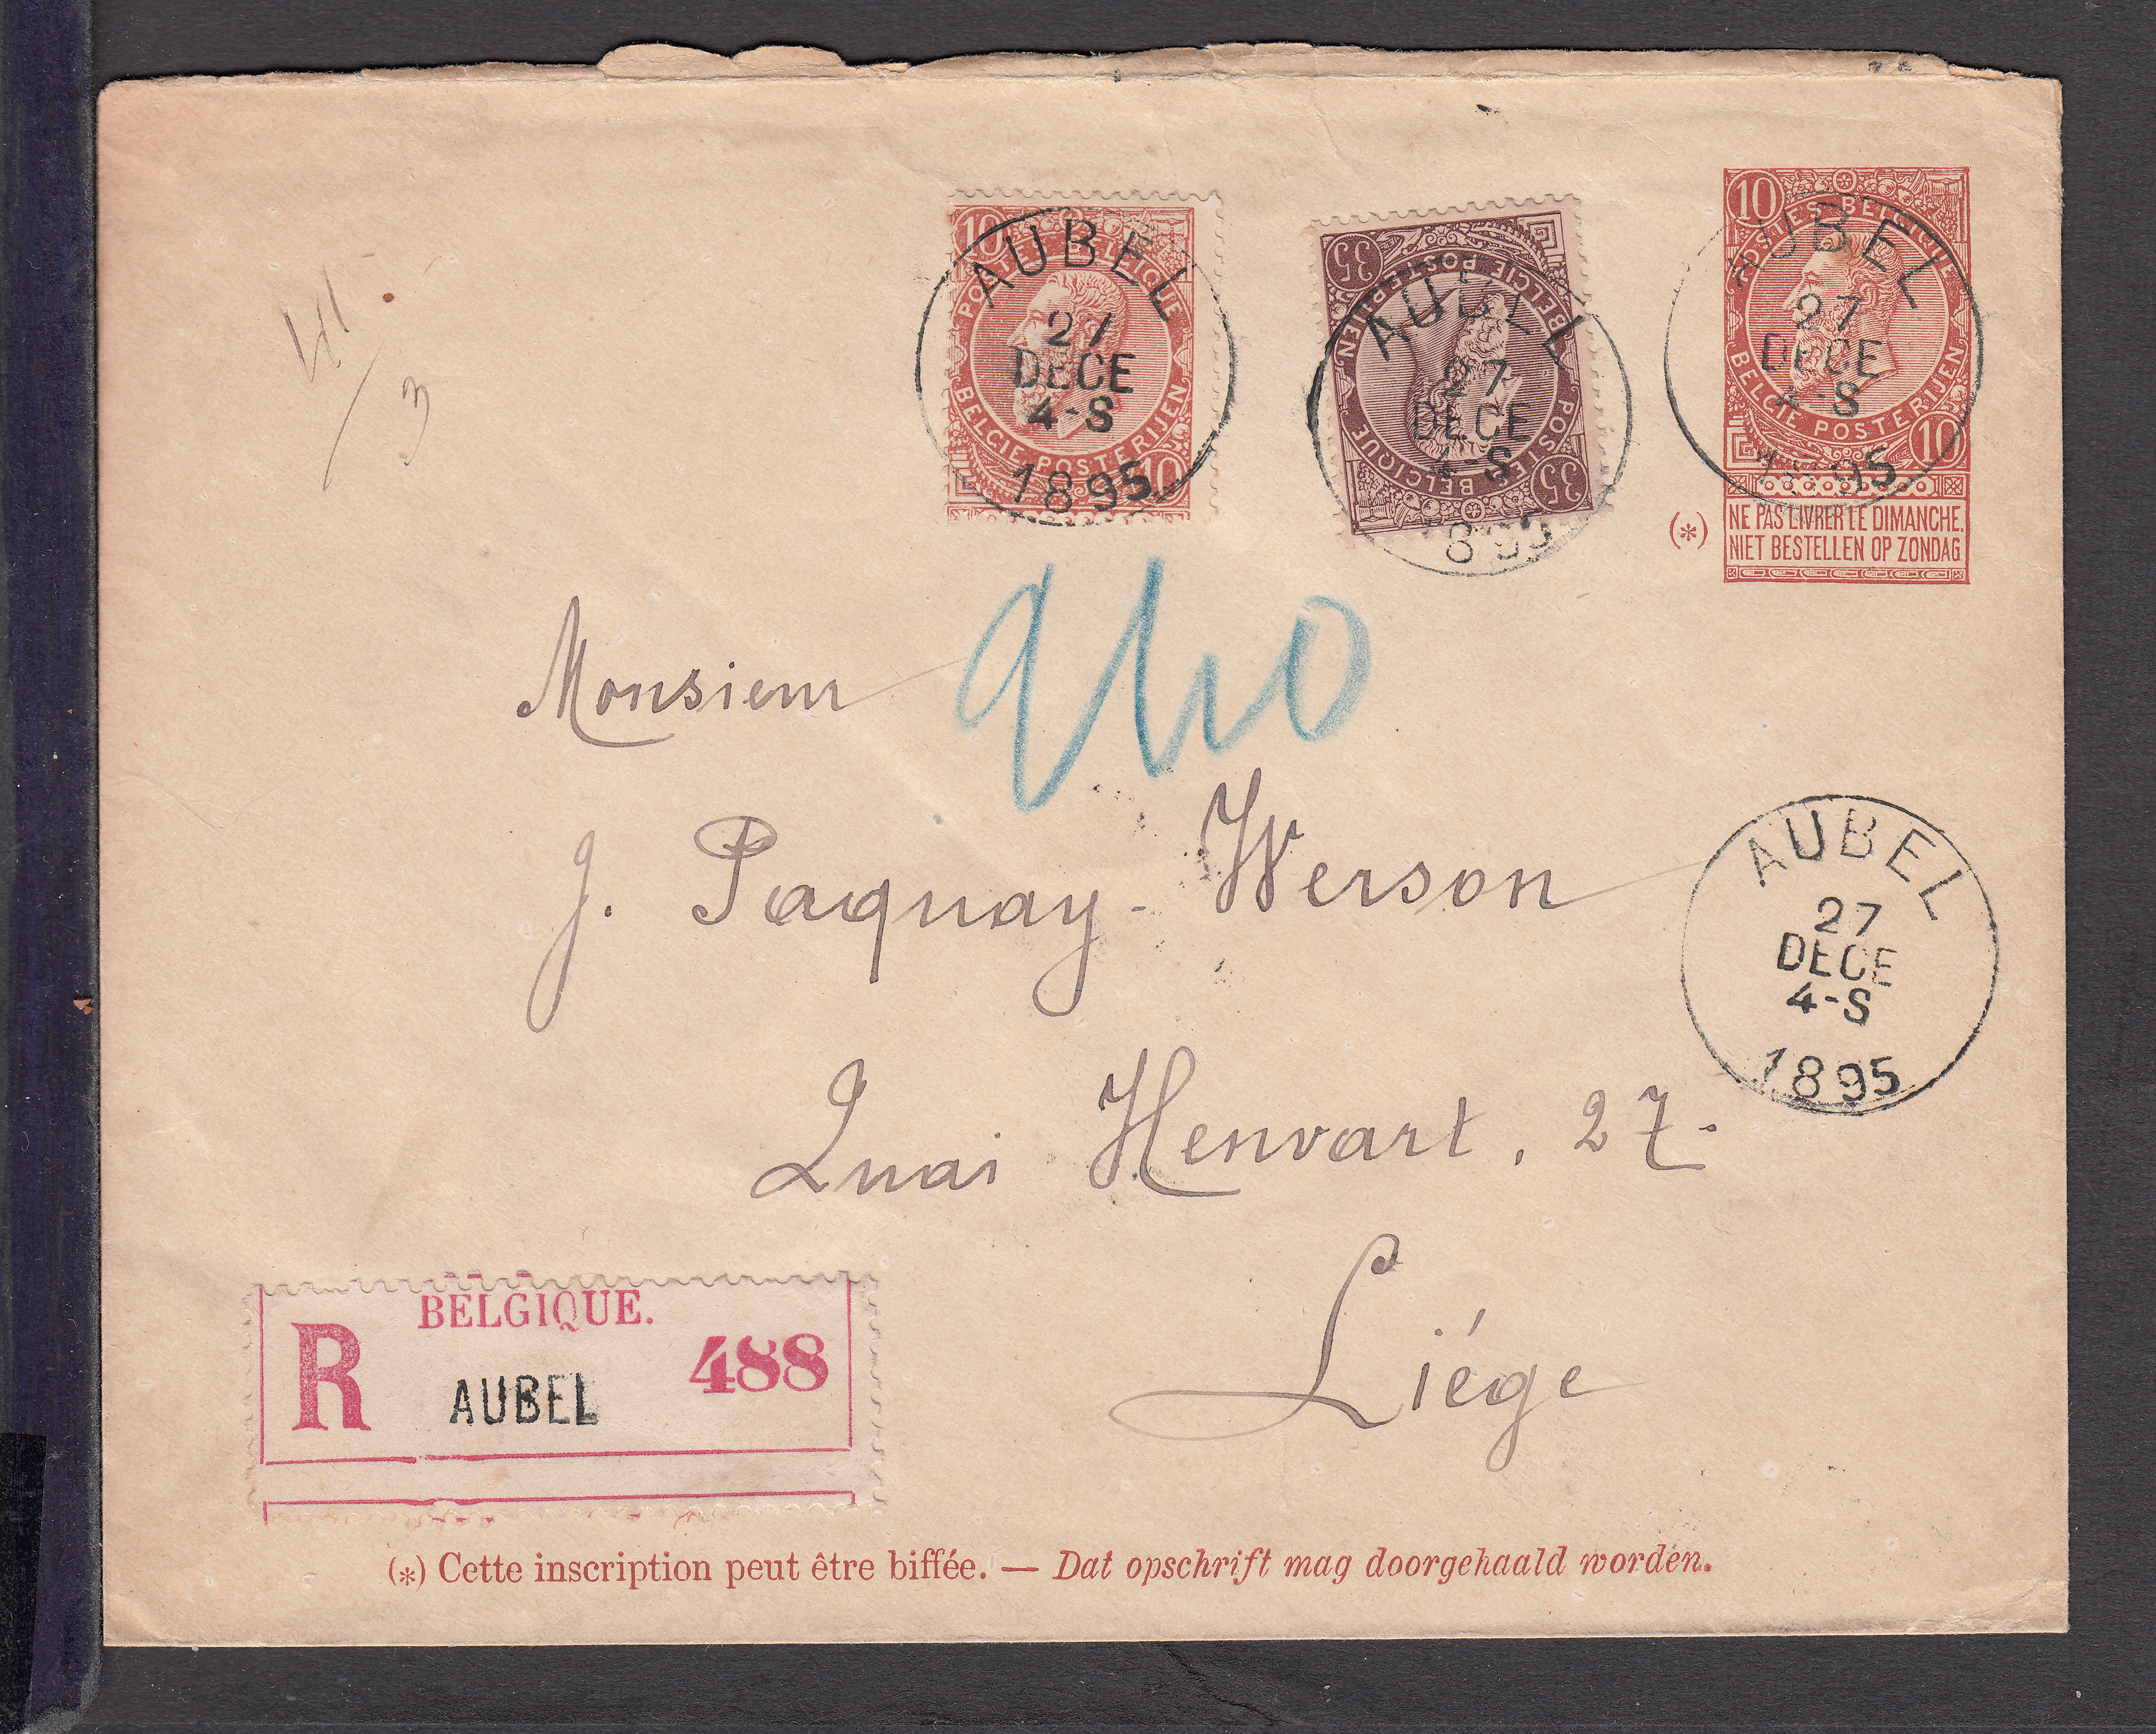 41 / 3
10
POSTES BELGIQUE
AUBEL
27
DECE
4-S
1895
BELGIE POSTERIJEN
10
35
POSTES BELGIQUE
BELGIE POSTERIJEN
AUBEL
27
DECE
4-S
895
35
10
POSTES BELGIQUE
AUBEL
27
DECE
4-S
1895
BELGIE POSTERIJEN
10
(*) NE PAS LIVRER LE DIMANCHE.
NIET BESTELLEN OP ZONDAG
Monsieur
J. Paquay-Werson
Quai Henvart, 27.
Liége
AUBEL
27
DECE
4-S
1895
BELGIQUE.
R AUBEL 488
(*) Cette inscription peut être biffée. — Dat opschrift mag doorgehaald worden.